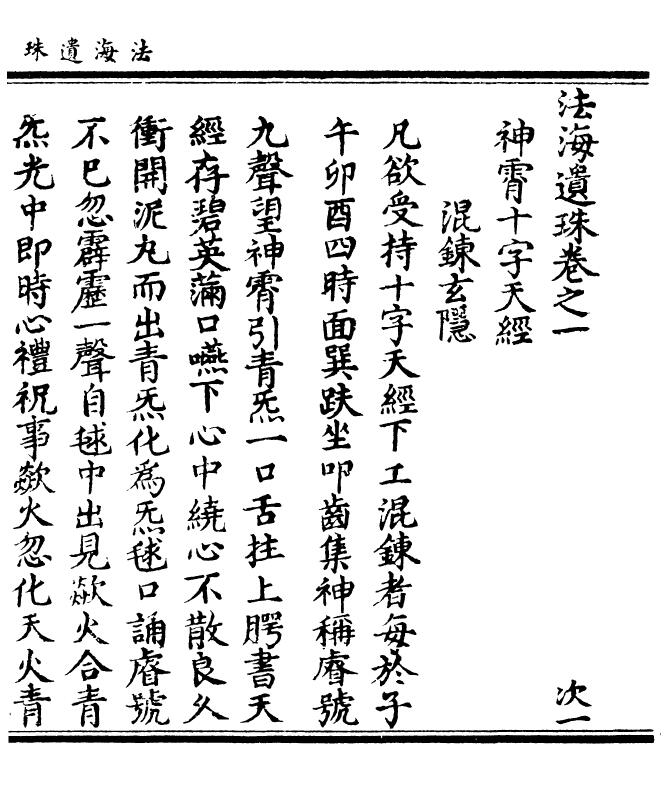 法海遺珠
法海遺珠卷之一 次一
神霄十字天經
混鍊玄隱
凡欲受持十字天經下工混鍊者每於子
午卯酉四時面巽趺坐叩齒集神稱睿號
九聲望神霄引青炁一口舌拄上腭書天
經存碧英滿口嚥下心中繞心不散良久
衝開泥丸而出青炁化為炁毬口誦睿號
不已忽霹靂一聲自毬中出見歘火合青
炁光中即時心禮祝事歘火忽化天火青